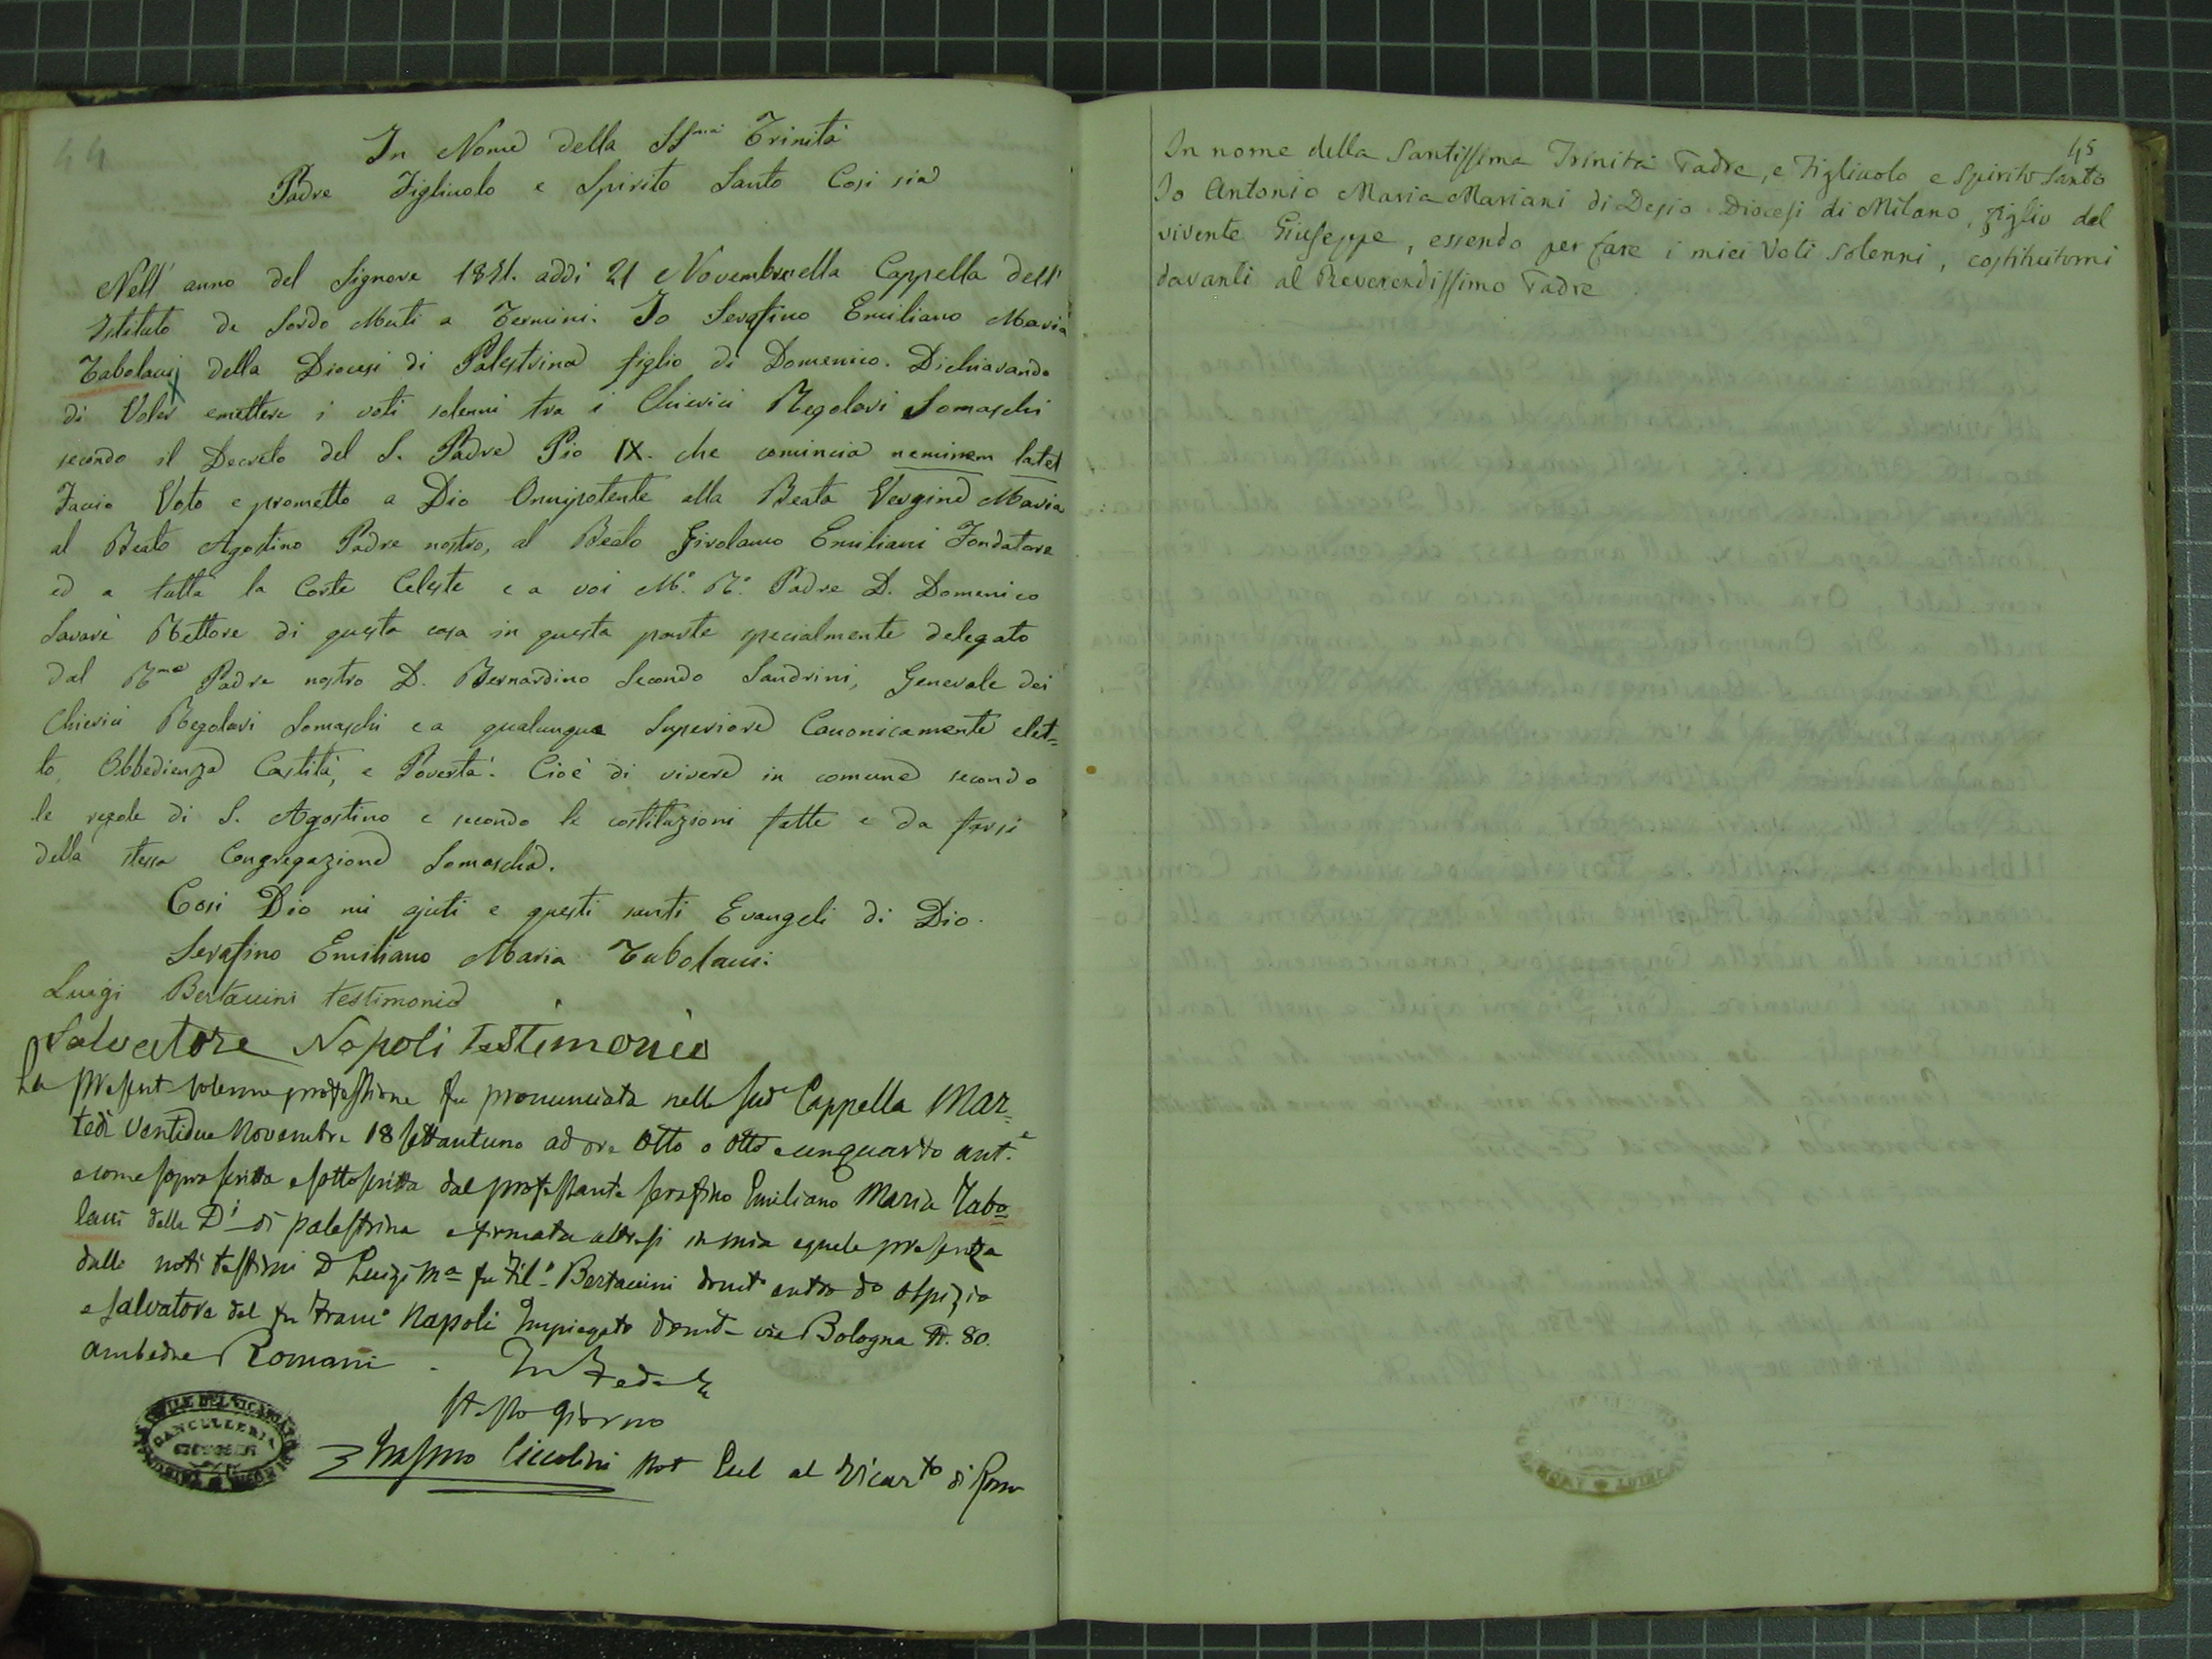 44
In Nome della SSma Trinità
Padre Figliuolo e Spirito Santo Così sia
Nell' anno del Signore 1871. addi 21 Novembre nella Cappella dell'
Istituto de Sordo Muti a Termini. Io Serafino Emiliano Maria
Tabolacci della Diocesi di Palestrina figlio di Domenico. Dichiarando
di Voler emettere i voti solenni tra i Chierici Regolari Somaschi
secondo il Decreto del S. Padre Pio IX. che comincia neminem latet
Faccio Voto e prometto a Dio Onnipotente alla Beata Vergine Maria
al Beato Agostino Padre nostro, al Beato Girolamo Emiliani Fondatore
ed a tutta la Corte Celeste e a voi Mo. Ro. Padre D. Domenico
Savarè Rettore di questa casa in questa parte specialmente delegato
dal Rmo Padre nostro D. Bernardino Secondo Sandrini, Generale dei
Chierici Regolari Somaschi e a qualunque Superiore Canonicamente elet=
to, Obbedienza Castità, e Povertà. Cioè di vivere in comune secondo
le regole di S. Agostino e secondo le costituzioni fatte e da farsi
della stessa Congregazione Somascha.
Così Dio mi ajuti e questi santi Evangeli di Dio.
Serafino Emiliano Maria Tabolacci
Luigi Bertaccini testimonio
Salvatore Napoli testimonio
La present solenne professione fu pronunciata nella sud Cappella Mar=
tedì Ventidue Novembre 18settantuno ad ore otto o otto e un quarto ante
e come soprascritta e sottoscritta dal professante Serafino Emiliano Maria Tabo=
lacci della Di di palestrina e firmata altresì in mia eguale presenza
dalli noti testimi D Luigi Ma fu Fil. Bertaccini domt entro do ospizio
e Salvatore del fu Franco Napoli Impiegato domt via Bologna N. 80.
ambedue Romani. In Fede
stesso giorno
Erasmo Ciccolini Not al Vicarto di Roma
CANCELLERIA
45
In nome della Santissima Trinità Padre, e Figliuolo e Spirito Santo
Io Antonio Maria Mariani di Desio Diocesi di Milano, figlio del
vivente Giuseppe, essendo per fare i miei Voti solenni, costituitomi
davanti al Reverendissimo Padre